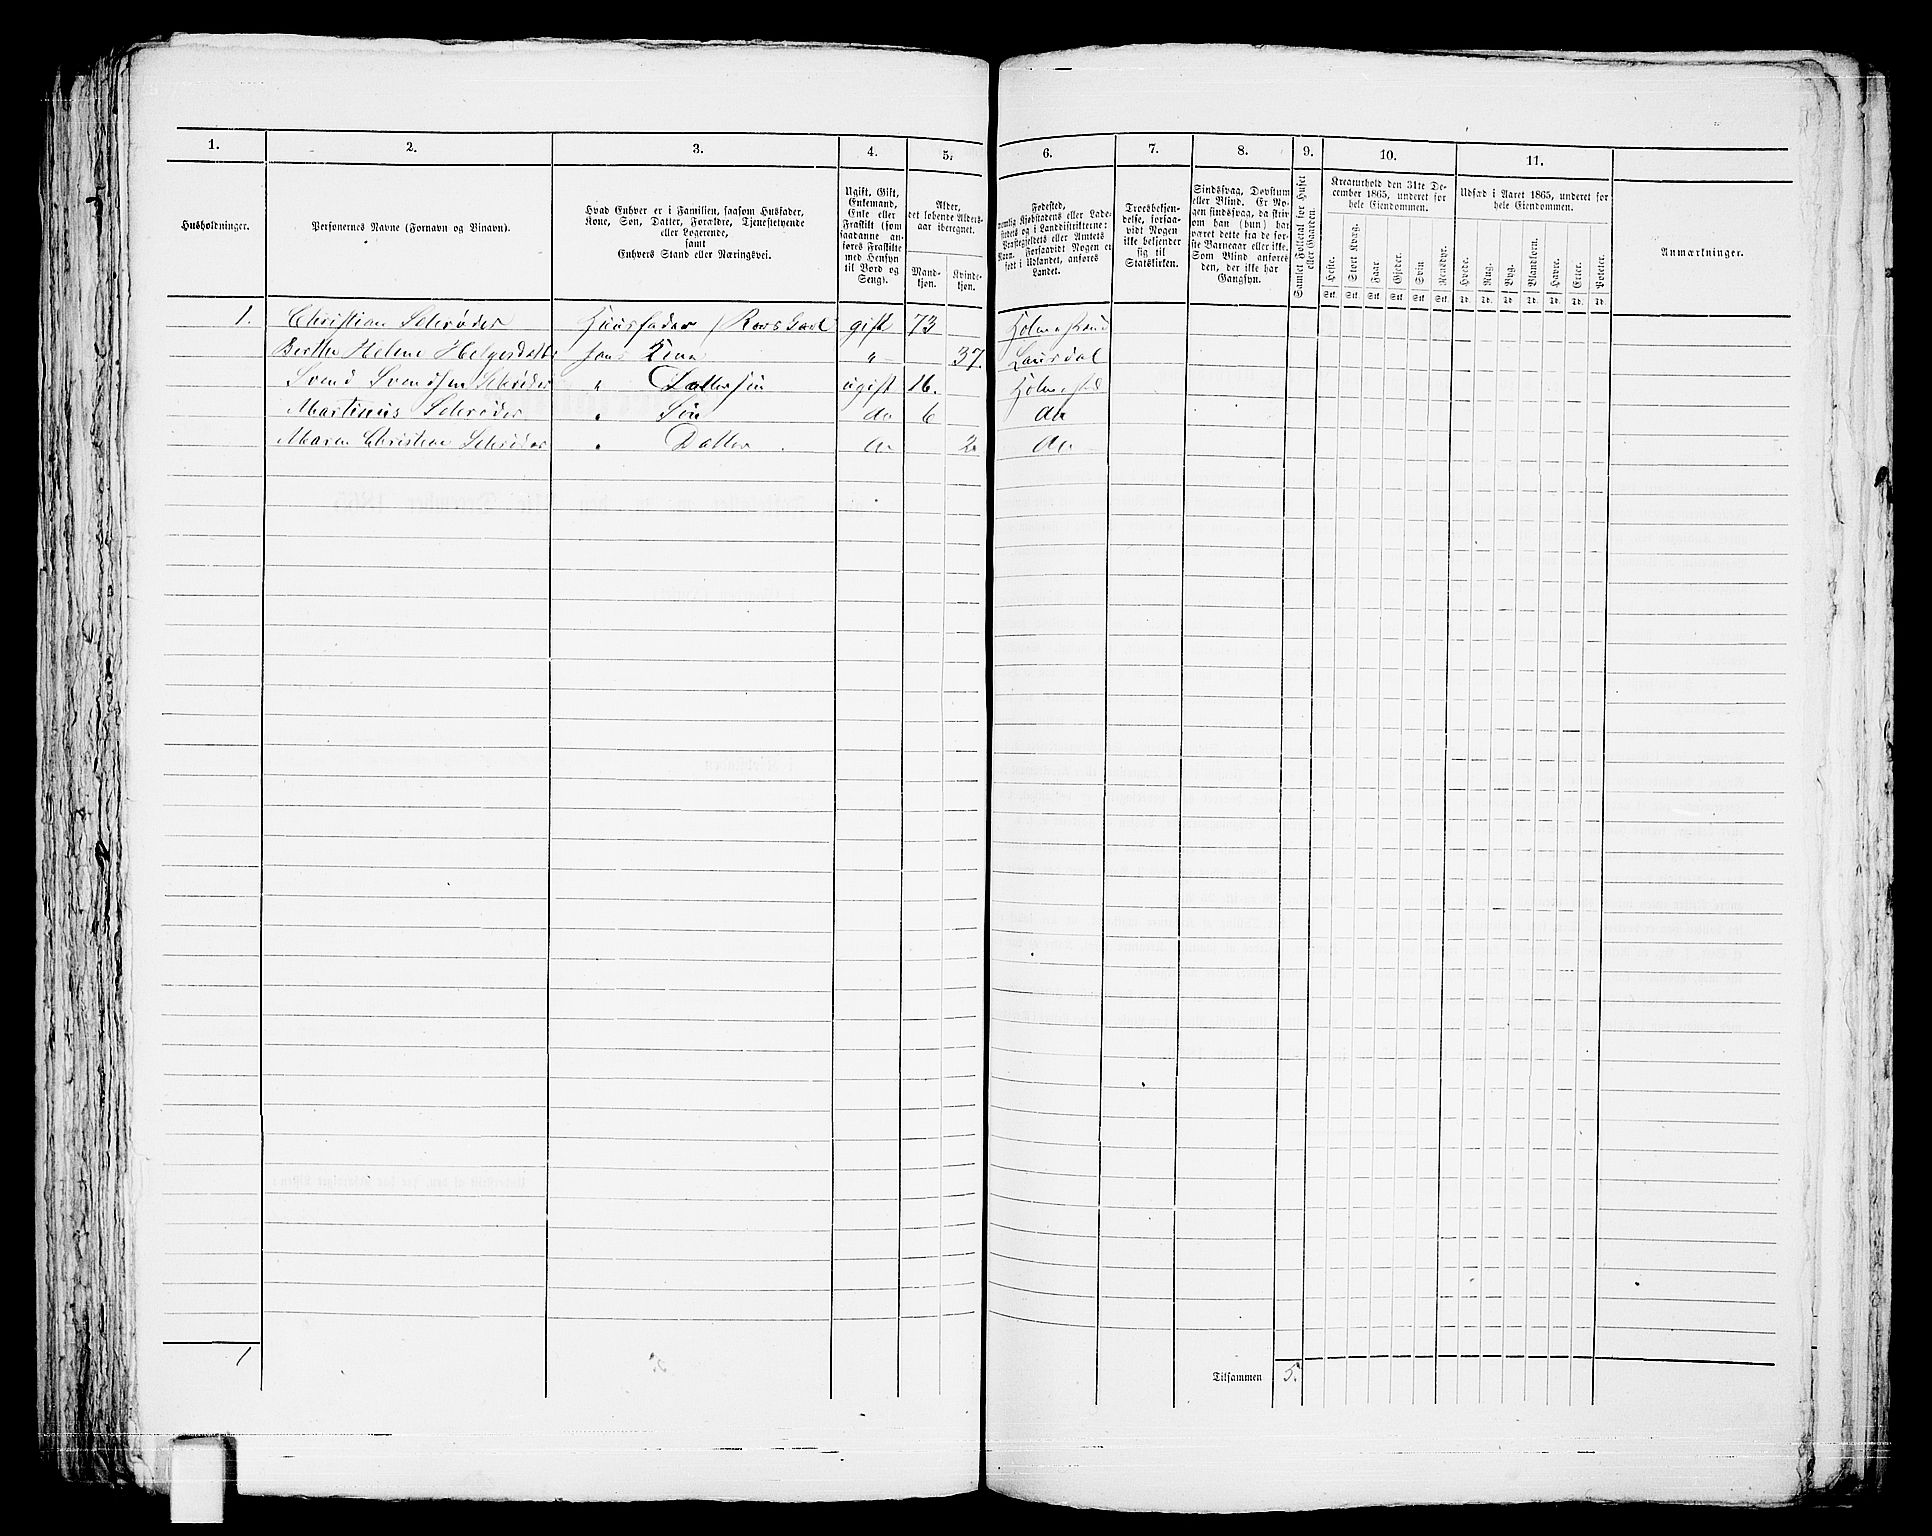 1. 2. 3. 4. 5. 6. 7. 8. 9. 10. 11.
Husholdninger.
Personernes Navne (Fornavn og Binavn).
Hvad Enhver er i Familien, saasom Husfader,
Kone, Søn, Datter, Forældre, Tjenestetyende
eller Logerende,
samt
Enhvers Stand eller Næringsvei.
Ugift, Gift,
Enkemand,
Enke eller
Fraskilt (som
saadanne an-
føres Fraskilte
med Hensyn
til Bord og
Seng).
Alder,
det løbende Alders-
aar iberegnet.
Mand-
kjøn.
Kvinde-
kjøn.
Fødested,
nemlig Kjøbstadens eller Lade-
stedets og i Landdistrikterne:
Præstegjeldets eller Amtets
Navn. Forsaavidt Nogen er
født i Udlandet, anføres
Landet.
Troesbekjen-
delse, forsaa-
vidt Nogen
ikke bekjender
sig til
Statskirken.
Sindssvag, Døvstum
eller Blind. Er No-
gen sindssvag, da skriv
om han (hun) har
været dette fra de før-
ste Barneaar eller ikke.
Som Blind anføres
den, der ikke har
Gangsyn.
Samlet Folketal for Huset
eller Gaarden.
Kreaturhold den 31te De-
cember 1865, underet for
hele Eiendommen.
Heste. Stort Kvæg. Faar Gjeder. Svin Rensdyr.
Stk. Stk. Stk. Stk. Stk. Stk.
Udsæd i Aaret 1865, underet for
hele Eiendommen.
Hvede. Rug. Byg. Blandkorn. Havre. Erter. Poteter.
Td. Td. Td. Td. Td. Td. Td.
Anmærkninger.
1. Christian Schrøder Huusfader gift 73 Holmestrand
Berthe Helene hans Kone " 37. Laurdal
Svend Svendsen Schrøder " Dattersøn ugift 16.
Martinus Schrøder " Søn do 6 do
Maren Christine Schrøder " Datter do 2 do
1
Tilsammen 5.